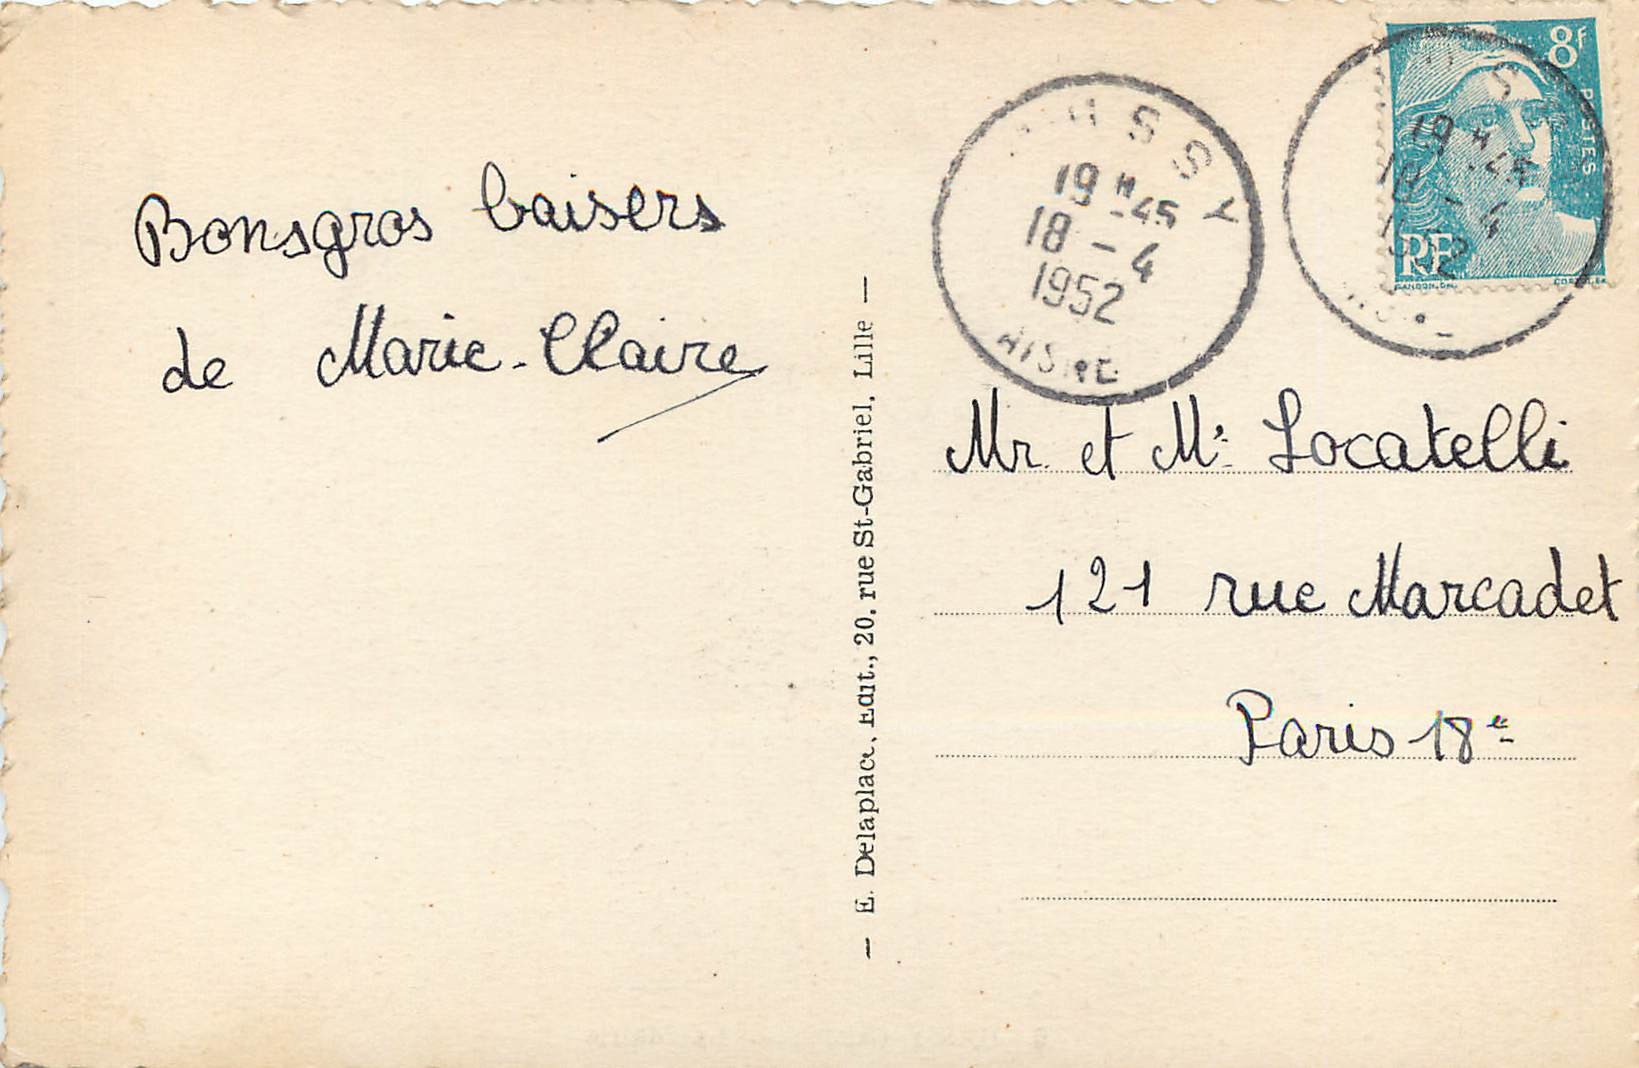 Bons gros baisers
de Marie-Claire
— E. Delaplace, Edit., 20, rue St-Gabriel, Lille —
19 H 45
18 - 4
1952
AISNE
8f
POSTES
RF
GANDON. DEL.
19 H 45
18 - 4
1952
Mr. et Me Locatelli
121 rue Marcadet
Paris 18e